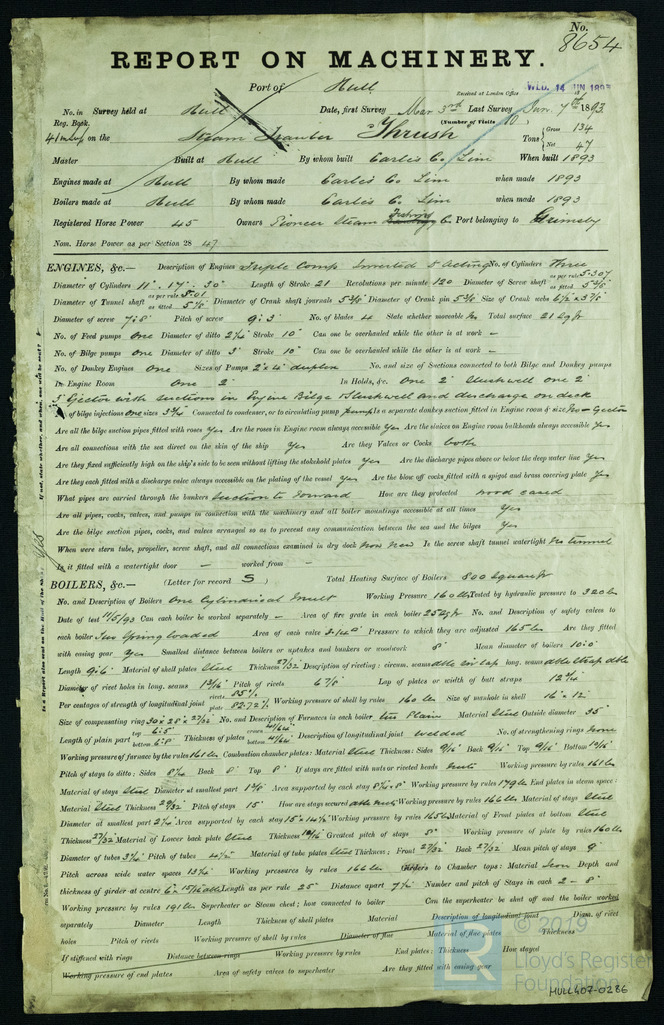 No. 8654
REPORT ON MACHINERY.
Port of Hull
Received at London Office WED. 14 JUN 1893
No. in Survey held at Hull Date, first Survey Mar 3rd Last Survey Jun. 7th 1893
Reg. Book. (Number of Visits 10)
on the Steam Trawler Thrush Tons Gross 134 Net 47
Master Built at Hull By whom built Earle's Co Lim When built 1893
Engines made at Hull By whom made Earle's Co Lim when made 1893
Boilers made at Hull By whom made Earle's Co Lim when made 1893
Registered Horse Power 45 Owners Pioneer Steam Fishing Co. Port belonging to Grimsby
Nom. Horse Power as per Section 28 47
ENGINES, &c.— Description of Engines Triple Comp Inverted D Acting No. of Cylinders Three
Diameter of Cylinders 11" . 17" . 30" Length of Stroke 21 Revolutions per minute 120 Diameter of Screw shaft as per rule 5.307 as fitted 5 3/8"
Diameter of Tunnel shaft as per rule 5.01 as fitted 5 1/8" Diameter of Crank shaft journals 5 3/8" Diameter of Crank pin 5 3/8" Size of Crank webs
Diameter of screw 7:8" Pitch of screw 9:3" No. of blades 4 State whether moveable No Total surface 21 sq ft
No. of Feed pumps One Diameter of ditto 2 1/4" Stroke 10" Can one be overhauled while the other is at work –
No. of Bilge pumps One Diameter of ditto 3" Stroke 10" Can one be overhauled while the other is at work –
No. of Donkey Engines One Sizes of Pumps 2" x 4" duplex No. and size of Suctions connected to both Bilge and Donkey pumps
In Engine Room One 2" In Holds, &c. One 2" Slushwell one 2"
5" Ejector with suctions in Engine Bilge & Slushwell and discharge on deck
of bilge injections One sizes 3 3/4" Connected to condenser, or to circulating pump pump Is a separate donkey suction fitted in Engine room & size No – Ejector
Are all the bilge suction pipes fitted with roses Yes Are the roses in Engine room always accessible Yes Are the sluices on Engine room bulkheads always accessible Yes
Are all connections with the sea direct on the skin of the ship Yes Are they Valves or Cocks both
Are they fixed sufficiently high on the ship's side to be seen without lifting the stokehold plates Yes Are the discharge pipes above or below the deep water line Yes
Are they each fitted with a discharge valve always accessible on the plating of the vessel Yes Are the blow off cocks fitted with a spigot and brass covering plate Yes
What pipes are carried through the bunkers Suction to forward How are they protected wood cased
Are all pipes, cocks, valves, and pumps in connection with the machinery and all boiler mountings accessible at all times Yes
Are the bilge suction pipes, cocks, and valves arranged so as to prevent any communication between the sea and the bilges Yes
When were stern tube, propeller, screw shaft, and all connections examined in dry dock Now New Is the screw shaft tunnel watertight No tunnel
Is it fitted with a watertight door – worked from –
BOILERS, &c.— (Letter for record S) Total Heating Surface of Boilers 800 square ft
No. and Description of Boilers One Cylindrical Mult Working Pressure 160 lbs Tested by hydraulic pressure to 320 lbs
Date of test 11/5/93 Can each boiler be worked separately – Area of fire grate in each boiler 25 sq ft No. and Description of safety valves to
each boiler Two Spring loaded Area of each valve 3.14" Pressure to which they are adjusted 165 lbs Are they fitted
with easing gear Yes Smallest distance between boilers or uptakes and bunkers or woodwork 8" Mean diameter of boilers 10:0
Length 9:6" Material of shell plates Steel Thickness 27/32" Description of riveting: circum. seams dble riv lap long. seams dble strap dble
Diameter of rivet holes in long. seams 13/16" Pitch of rivets 6 7/8" Lap of plates or width of butt straps
Per centages of strength of longitudinal joint rivets 85% plate 82.72% Working pressure of shell by rules 160 lbs Size of manhole in shell 16" x 12"
Size of compensating ring 30 x 28 x 27/32" No. and Description of Furnaces in each boiler two Plain Material Steel Outside diameter 35"
Length of plain part top 6:5" bottom 6:8" Thickness of plates crown bottom Description of longitudinal joint welded No. of strengthening rings None
Working pressure of furnace by the rules 161 lbs Combustion chamber plates: Material Steel Thickness: Sides 9/16" Back 9/16" Top 9/16" Bottom
Pitch of stays to ditto: Sides 8 3/4" Back 8" Top 8" If stays are fitted with nuts or riveted heads Nuts Working pressure by rules 161 lbs
Material of stays Steel Diameter at smallest part 1 3/8" Area supported by each stay Working pressure by rules 179 lbs End plates in steam space:
Material Steel Thickness 29/32" Pitch of stays 15" How are stays secured dble nuts Working pressure by rules 166 lbs Material of stays Steel
Diameter at smallest part 2 1/4" Area supported by each stay 15" x 14 1/2" Working pressure by rules 165 lbs Material of Front plates at bottom Steel
Thickness 27/32" Material of Lower back plate Steel Thickness Greatest pitch of stays 8" Working pressure of plate by rules 160 lbs
Diameter of tubes 3 1/4" Pitch of tubes 4 1/2" Material of tube plates Steel Thickness: Front 27/32" Back 27/32" Mean pitch of stays 9"
Pitch across wide water spaces 13 1/4" Working pressures by rules 166 lbs Girders to Chamber tops: Material Iron Depth and
thickness of girder at centre Length as per rule 25" Distance apart 7 3/4" Number and pitch of Stays in each 2 – 8"
Working pressure by rules 191 lbs Superheater or Steam chest; how connected to boiler Can the superheater be shut off and the boiler worked
separately Diameter Length Thickness of shell plates Material Description of longitudinal joint Diam. of rivet
holes Pitch of rivets Working pressure of shell by rules Diameter of flue Material of flue plates Thickness
If stiffened with rings Distance between rings Working pressure by rules End plates: Thickness How stayed
Working pressure of end plates Area of safety valves to superheater Are they fitted with easing gear
© 2019
LR
Lloyd's Register
Foundation
HULL407-0286